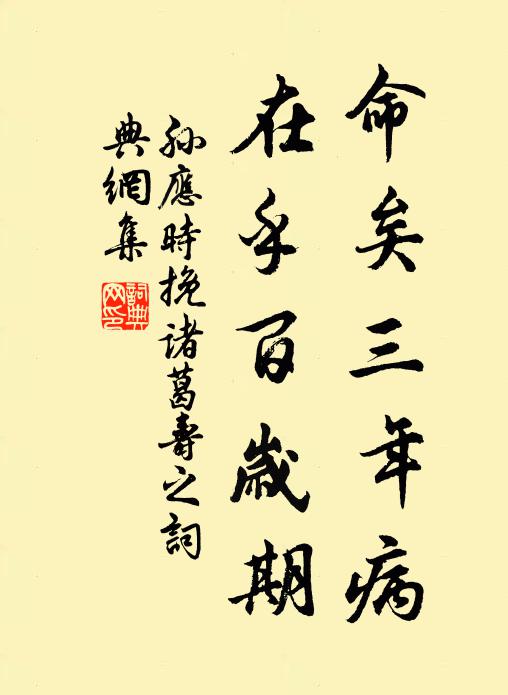 命矣三年病
在乎百歲期
孫應時挽諸葛壽之詞
典網集
詞典
网印